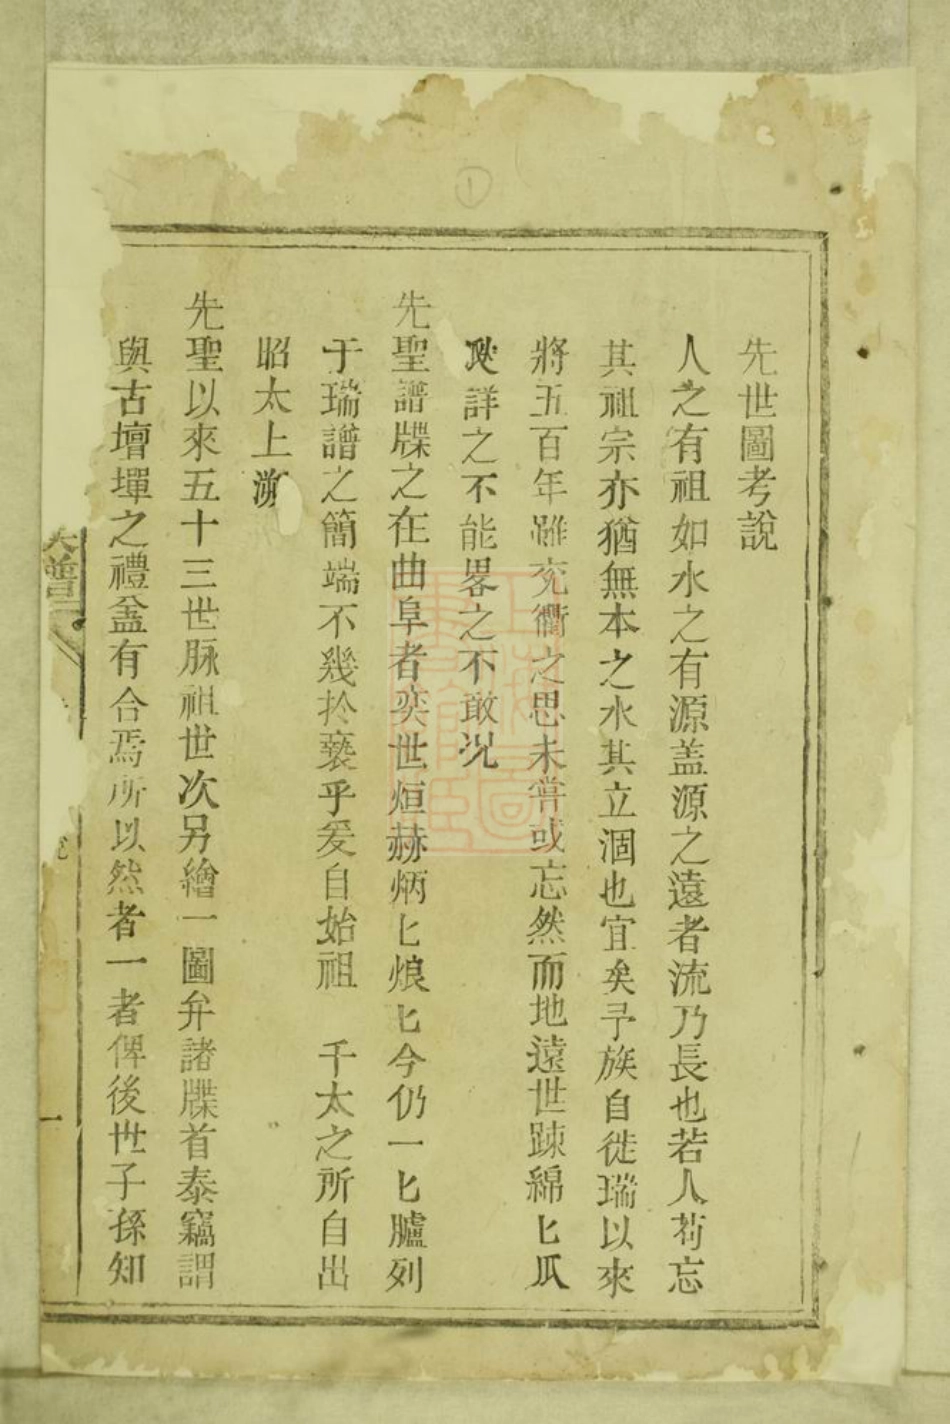 先世圖考說
人之有祖如水之有源盖源之遠者流乃長也若人茍忘
其祖宗亦猶無本之水其立涸也宜矣予族自徙瑞以來
將五百年雖兖衢之思未甞或忘然而地遠世踈綿匕瓜
瓞詳之不能畧之不敢况
先聖譜牒之在曲阜者奕世烜赫炳匕烺匕今仍一匕臚列
于瑞譜之簡端不幾扵䙝乎爰自始祖 千太之所自出
昭太上溯
先聖以來五十三世脉祖世次另繪一圖弁諸牒首泰竊謂
與古壇墠之禮盖有合焉所以然者一者俾後世子孫知
一
①